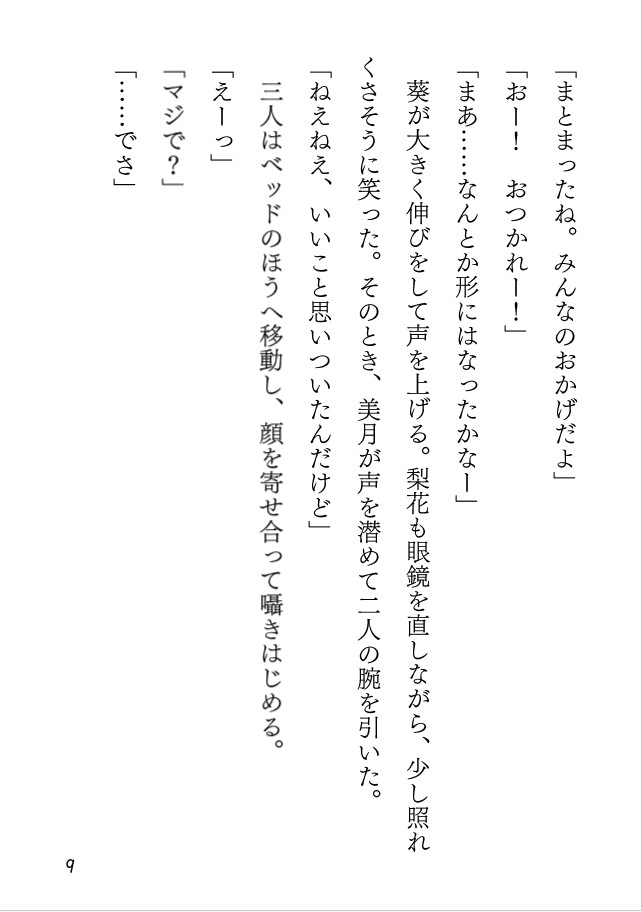 「まとまったね。みんなのおかげだよ」
「おー！　おつかれー！」
「まあ……なんとか形にはなったかなー」
　葵が大きく伸びをして声を上げる。梨花も眼鏡を直しながら、少し照れ
くさそうに笑った。そのとき、美月が声を潜めて二人の腕を引いた。
「ねえねえ、いいこと思いついたんだけど」
　三人はベッドのほうへ移動し、顔を寄せ合って囁きはじめる。
「えーっ」
「マジで？」
「……でさ」
9